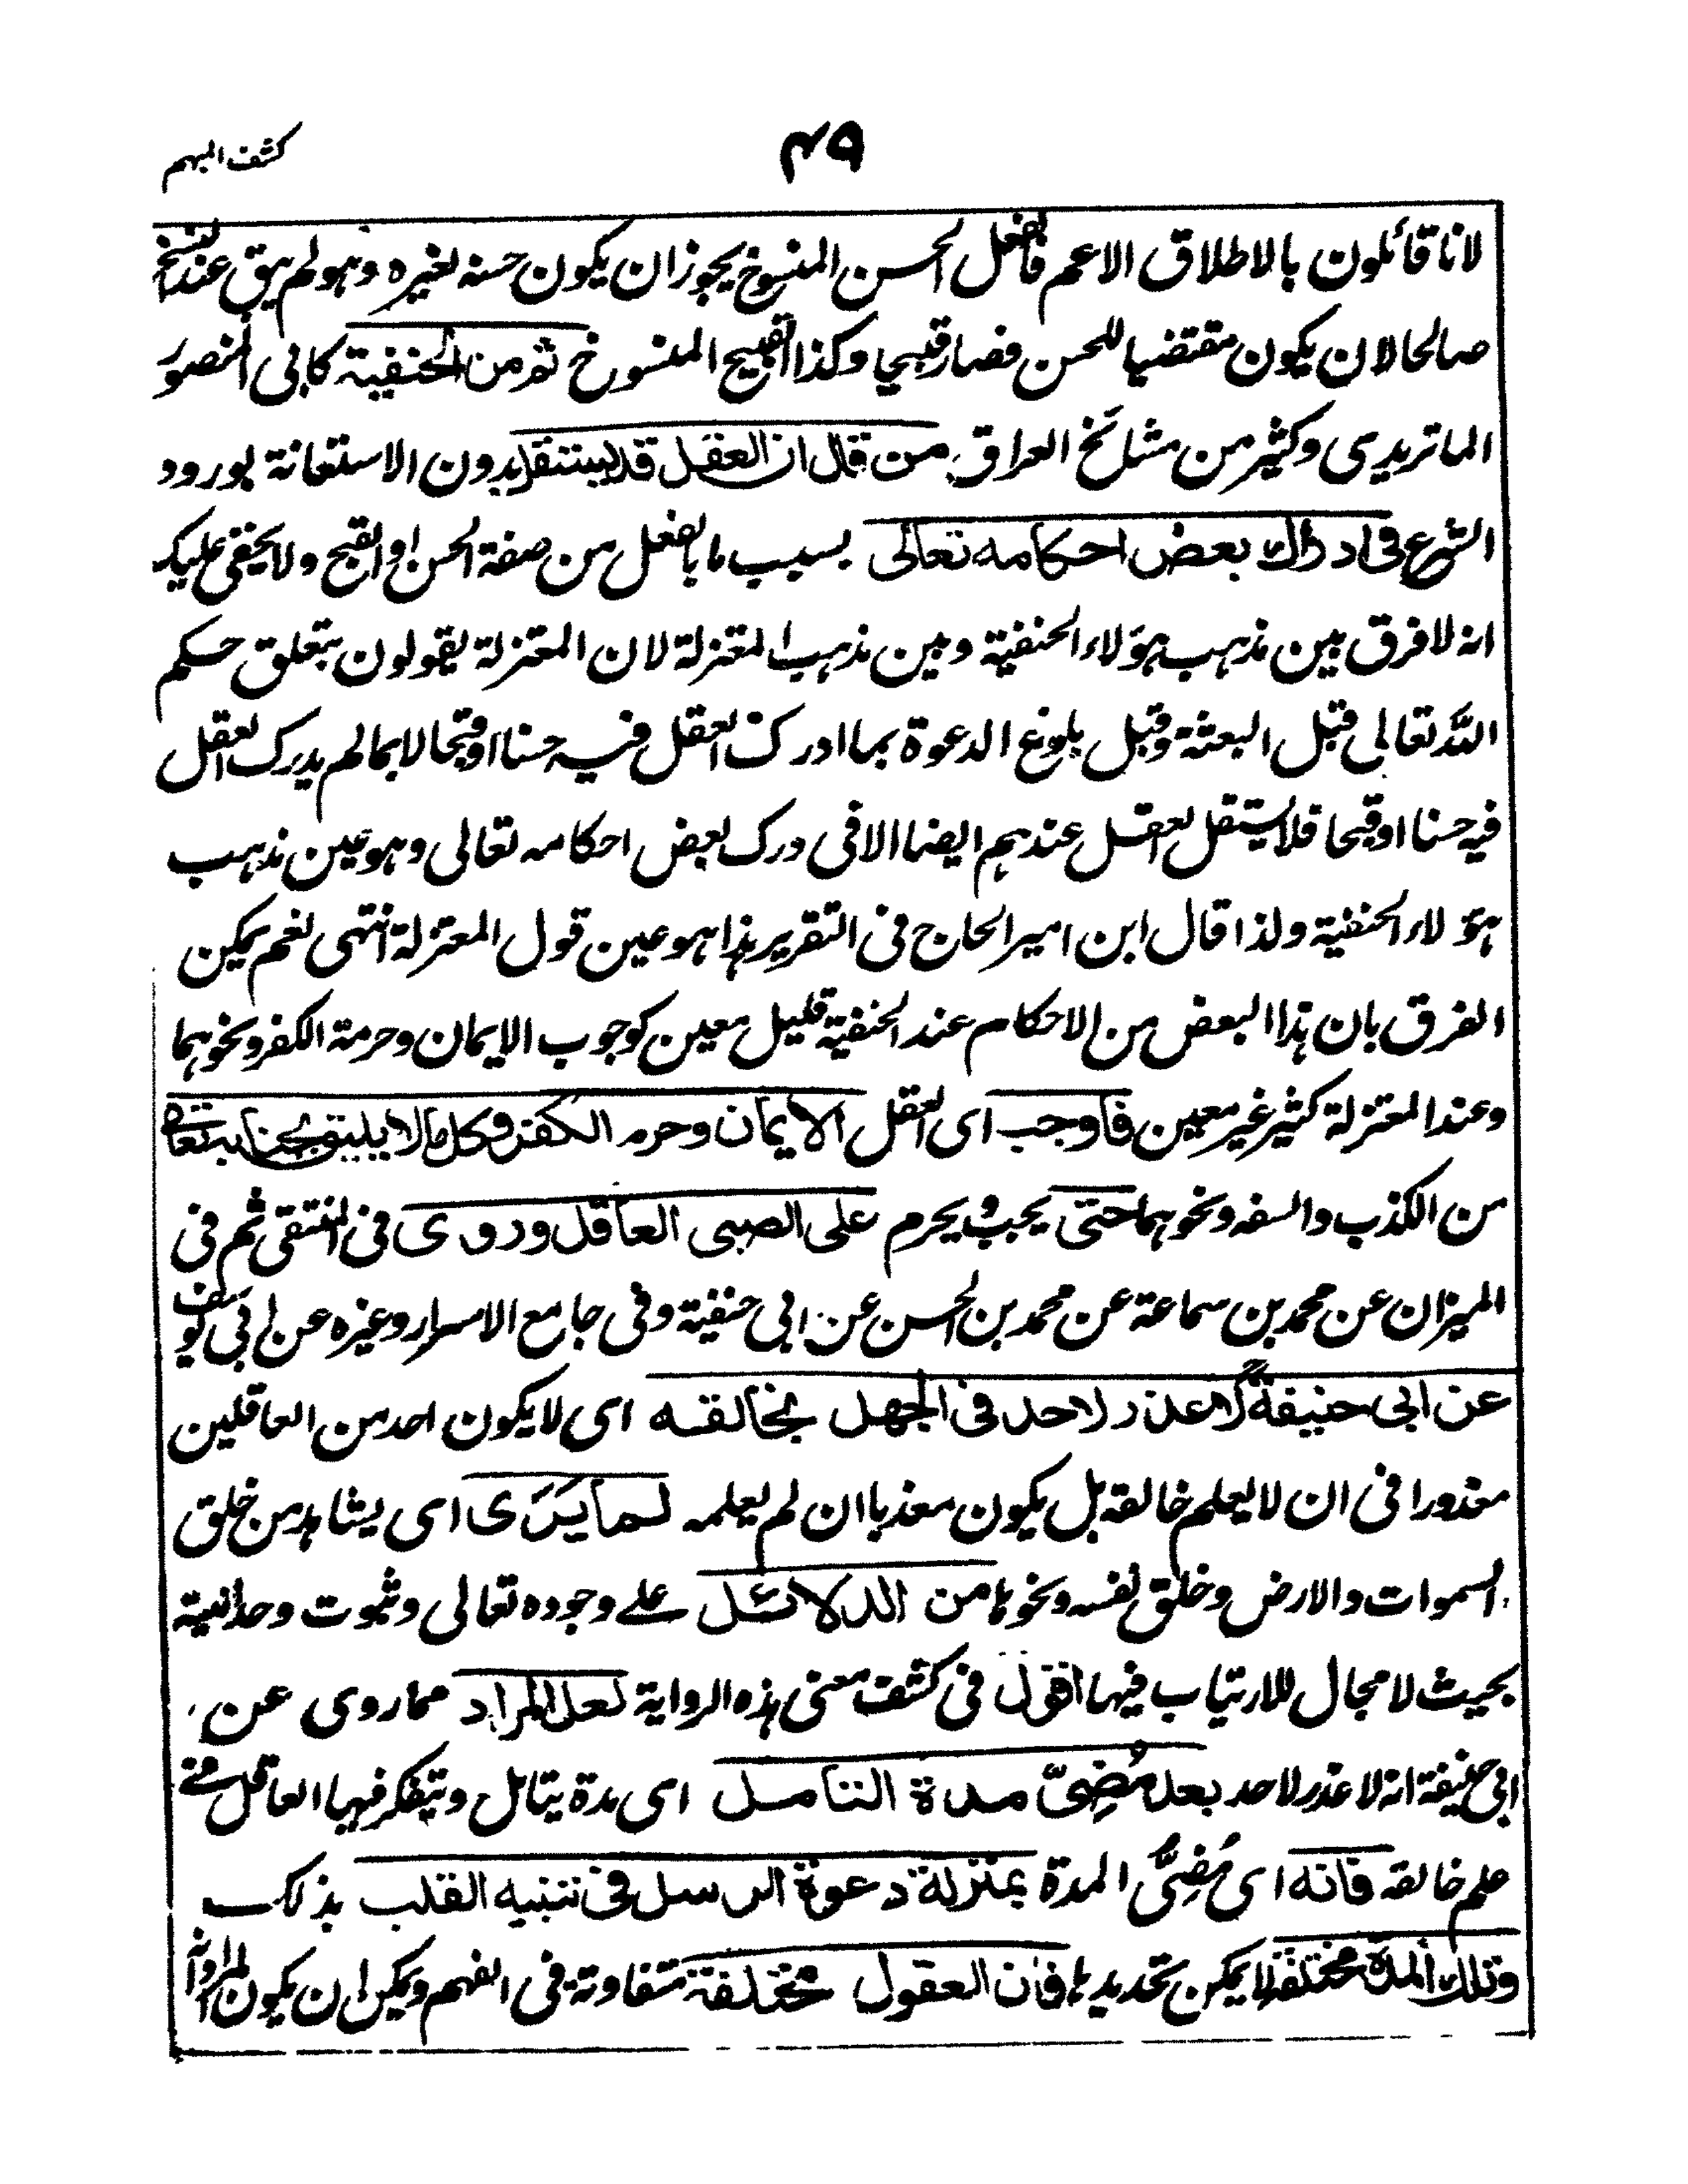 كشف المبهم
٤٩
لانا قائلون بالاطلاق الاعم فالفعل الحسن المنسوخ يجوز ان يكون حسنه لغيره وهو لم يبق عند النسخ
صالحا لان يكون مقتضيا للحسن فصار قبيحا وكذا القبيح المنسوخ ثم من الحنفية كابى المنصور
الماتريدى وكثير من مشائخ العراق من قال ان العقل قد يستقل بدون الاستعانة بورود
الشرع فى ادراك بعض احكامه تعالى بسبب ما بالفعل من صفة الحسن او القبح ولا يخفى عليك
انه لا فرق بين مذهب هؤلاء الحنفية وبين مذهب المعتزلة لان المعتزلة يقولون بتعلق حكم
الله تعالى قبل البعثة وقبل بلوغ الدعوة بما ادرك العقل فيه حسنا او قبحا لا بما لم يدرك العقل
فيه حسنا او قبحا فلا يستقل العقل عندهم ايضا الا فى درك بعض احكامه تعالى وهو عين مذهب
هؤلاء الحنفية ولذا قال ابن امير الحاج فى التقرير هذا هو عين قول المعتزلة انتهى نعم يمكن
الفرق بان هذا البعض من الاحكام عند الحنفية قليل معين كوجوب الايمان وحرمة الكفر ونحوهما
وعند المعتزلة كثير غير معين فاوجب اى العقل الايمان وحرم الكفر وكل ما لا يليق بجنابه تعالى
من الكذب والسفه ونحوهما حتى يجب ويحرم على الصبى العاقل وروى فى المنتقى ثم فى
الميزان عن محمد بن سماعة عن محمد بن الحسن عن ابى حنيفة وفى جامع الاسرار وغيره عن ابى يوسف
عن ابى حنيفة لا عذر لاحد فى الجهل بخالقه اى لا يكون احد من العاقلين
معذورا فى ان لا يعلم خالقه بل يكون معذبا ان لم يعلمه لما يرى اى يشاهد من خلق
السموات والارض وخلق نفسه ونحوها من الدلائل على وجوده تعالى وثبوت وحدانيته
بحيث لا مجال للارتياب فيها اقول فى كشف معنى هذه الرواية لعل المراد مما روى عن
ابى حنيفة انه لا عذر لاحد بعد مُضِىّ مدة التامل اى مدة يتامل ويتفكر فيها العاقل فى
علم خالقه فانه اى مُضِىُّ المدة بمنزلة دعوة الرسل فى تنبيه القلب بذلك
وتلك المدة مختلفة لا يمكن تحديدها فان العقول مختلفة متفاوتة فى الفهم ويمكن ان يكون المراد انه